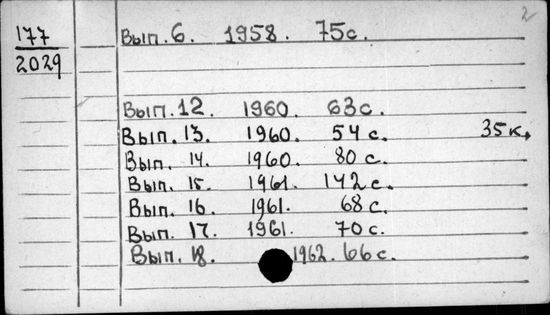 2
177
2029
Вып. 6. 1958. 75с.
Вып. 12. 1960. 63с.
Вып. 13. 1960. 54с. 35к.
Вып. 14. 1960. 80с.
Вып. 15. 1961. 142с.
Вып. 16. 1961. 68с.
Вып. 17. 1961. 70с.
Вып. 18. 1962. 66с.